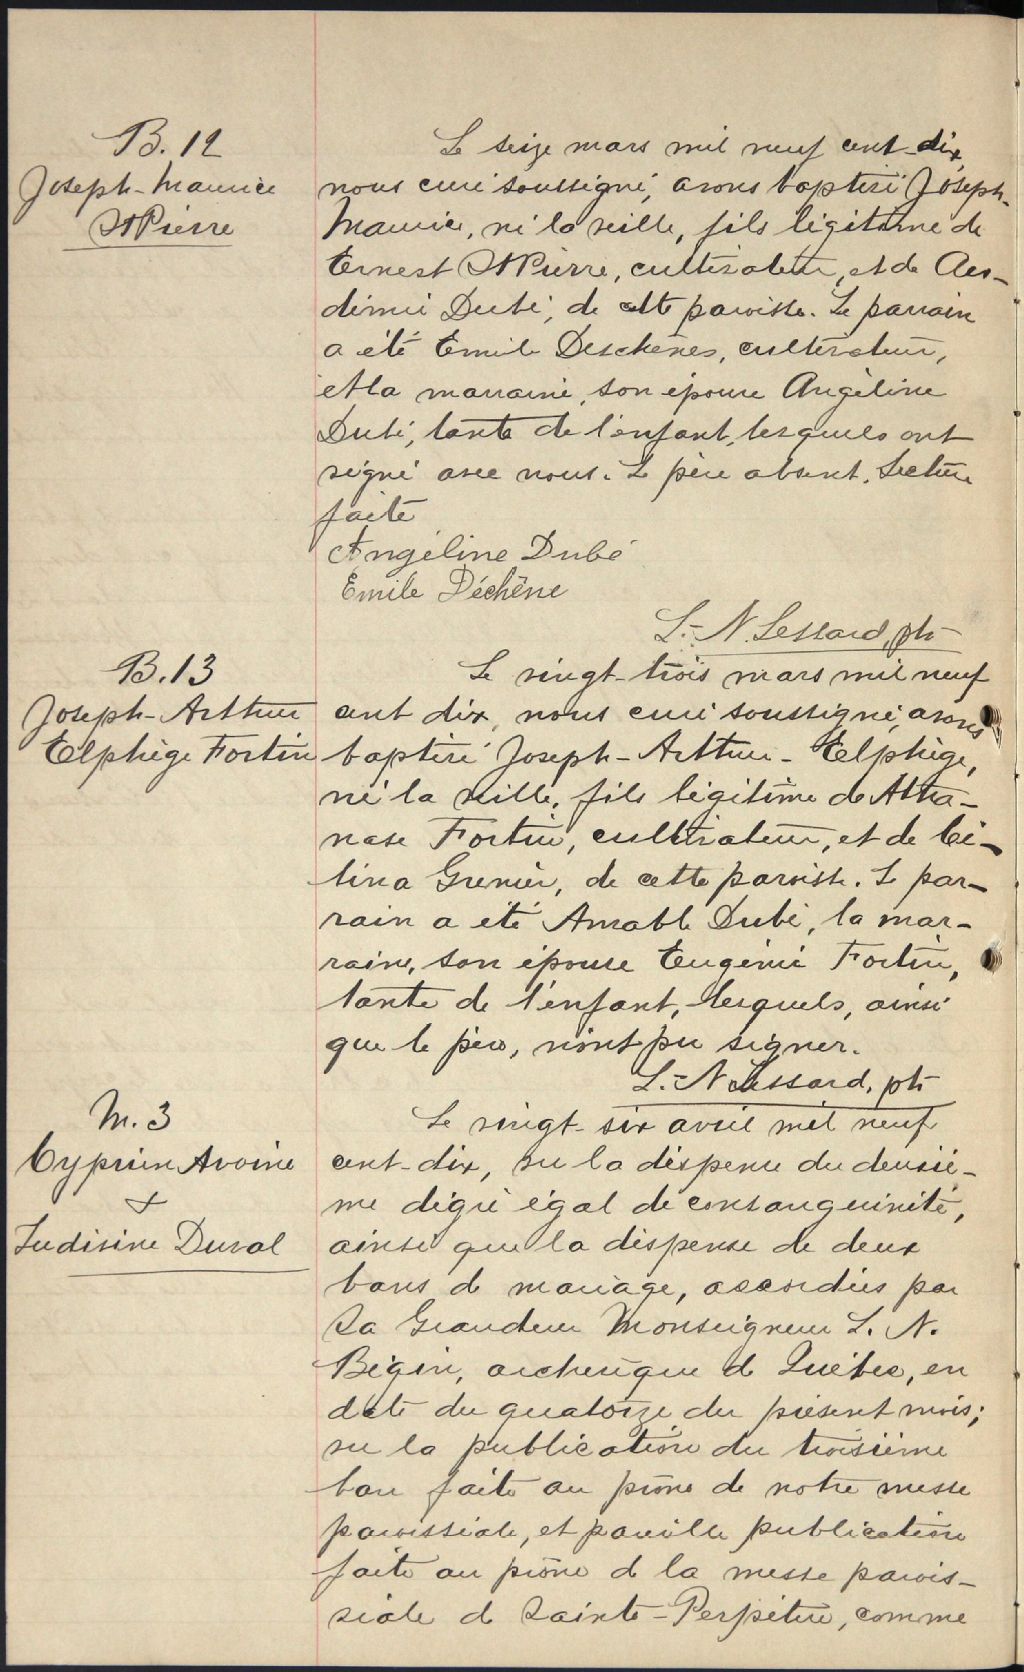 B. 12
Joseph-Maurice
St Pierre
Le seize mars mil neuf cent-dix,
nous curé soussigné, avons baptisé Joseph-
Maurice, né la veille, fils légitime de
Ernest St Pierre, cultivateur, et de
Dubé, de cette paroisse. Le parrain
a été Emile Deschênes, cultivateur,
et la marraine, son épouse Angéline
Dubé, tante de l'enfant, lesquels ont
signé avec nous. Le père absent. Lecture
faite
Angéline Dubé
Emile Déchêne
L.-N. Lessard, ptr
B. 13
Joseph-Arthur
Elphège Fortin
Le vingt-trois mars mil neuf
cent dix, nous curé soussigné, avons
baptisé Joseph-Arthur-Elphège,
né la veille, fils légitime de Atha-
nase Fortin, cultivateur, et de Cé-
lina Grenier, de cette paroisse. Le par-
rain a été Amable Dubé, la mar-
raine, son épouse Eugénie Fortin,
tante de l'enfant, lesquels, ainsi
que le père, n'ont pu signer.
L.-N. Lessard, ptr
M. 3
Cyprien Avoine
&
Ludivine Duval
Le vingt-six avril mil neuf
cent-dix, vu la dispense du deuxiè-
me degré égal de consanguinité,
ainsi que la dispense de deux
bans de mariage, accordées par
Sa Grandeur Monseigneur L. N.
Bégin, archevêque de Québec, en
date du quatorze du présent mois;
vu la publication du troisième
ban faite au prône de notre messe
paroissiale, et pareille publication
faite au prône de la messe parois-
siale de Sainte-Perpétue, comme